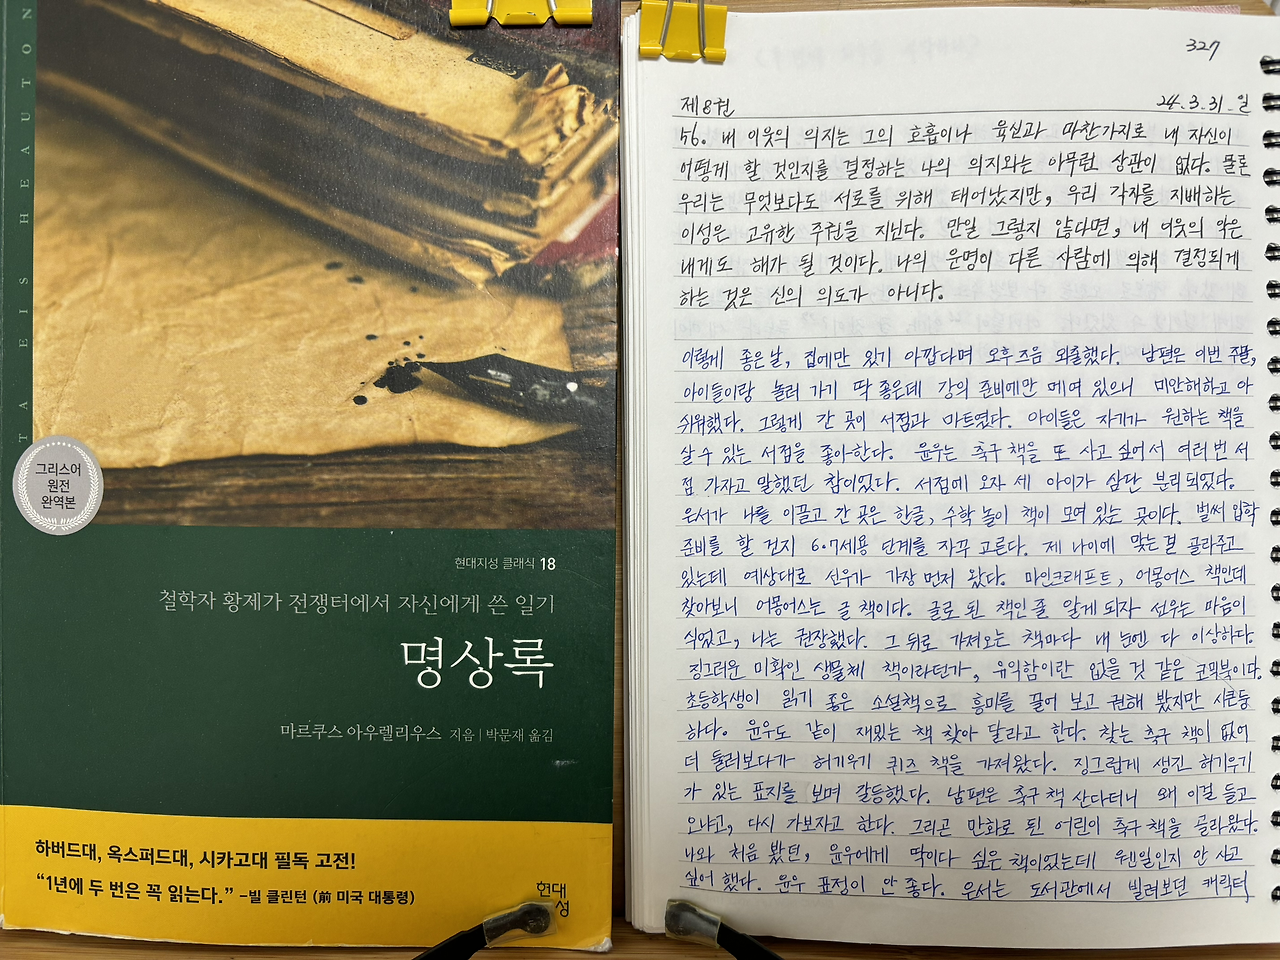 TA EIS HEAUTON
그리스어
원전
완역본
현대지성 클래식 18
철학자 황제가 전쟁터에서 자신에게 쓴 일기
명상록
마르쿠스 아우렐리우스 지음 | 박문재 옮김
하버드대, 옥스퍼드대, 시카고대 필독 고전!
“1년에 두 번은 꼭 읽는다.” -빌 클린턴 (前 미국 대통령)
현대
성
327
제8권 24.3.31. 일
56. 내 이웃의 의지는 그의 호흡이나 육신과 마찬가지로 내 자신이
어떻게 할 것인지를 결정하는 나의 의지와는 아무런 상관이 없다. 물론
우리는 무엇보다도 서로를 위해 태어났지만, 우리 각자를 지배하는
이성은 고유한 주권을 지닌다. 만일 그렇지 않다면, 내 이웃의 악은
내게도 해가 될 것이다. 나의 운명이 다른 사람에 의해 결정되게
하는 것은 신의 의도가 아니다.
이렇게 좋은 날, 집에만 있기 아깝다며 오후즈음 외출했다. 남편은 이번 주말,
아이들이랑 놀러 가기 딱 좋은데 강의 준비에만 메여 있으니 미안해하고 아
쉬워했다. 그렇게 간 곳이 서점과 마트였다. 아이들은 자기가 원하는 책을
살 수 있는 서점을 좋아한다. 윤우는 축구 책을 또 사고 싶어서 여러 번 서
점 가자고 말했던 참이었다. 서점에 오자 세 아이가 삼단 분리되었다.
은서가 나를 이끌고 간 곳은 한글, 수학 놀이 책이 모여 있는 곳이다. 벌써 입학
준비를 할 건지 6·7세용 단계를 자꾸 고른다. 제 나이에 맞는 걸 골라주고
있는데 예상대로 선우가 가장 먼저 왔다. 마인크래프트, 어몽어스 책인데
찾아보니 어몽어스는 글 책이다. 글로 된 책인 줄 알게 되자 선우는 마음이
식었고, 나는 권장했다. 그 뒤로 가져오는 책마다 내 눈엔 다 이상하다.
징그러운 미확인 생물체 책이라던가, 유익함이란 없을 것 같은 코믹북이다.
초등학생이 읽기 좋은 소설책으로 흥미를 끌어 보고 권해 봤지만 시큰둥
하다. 윤우도 같이 재밌는 책 찾아 달라고 한다. 찾는 축구 책이 없어
더 둘러보다가 허기우기 퀴즈 책을 가져왔다. 징그럽게 생긴 허기우기
가 있는 표지를 보며 갈등했다. 남편은 축구 책 산다더니 왜 이걸 들고
오냐고, 다시 가보자고 한다. 그리곤 만화로 된 어린이 축구 책을 골라왔다.
나와 처음 봤던, 윤우에게 딱이다 싶은 책이었는데 웬일인지 안 사고
싶어 했다. 윤우 표정이 안 좋다. 은서는 도서관에서 빌려보던 캐릭터